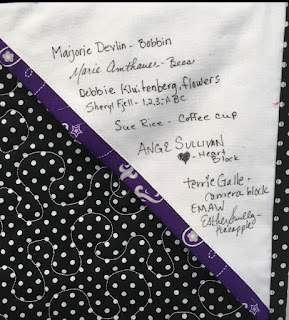 Marjorie Devlin - Bobbin
Marie Amthauer - Bees
Debbie Kluitenberg, flowers
Sheryl Fjell - 1,2,3; ABC
Sue Rice - Coffee cup
ANGE SULLIVAN
- Heart
Block
terrie Galle -
camera block
EMAW
Esther
Pineapple